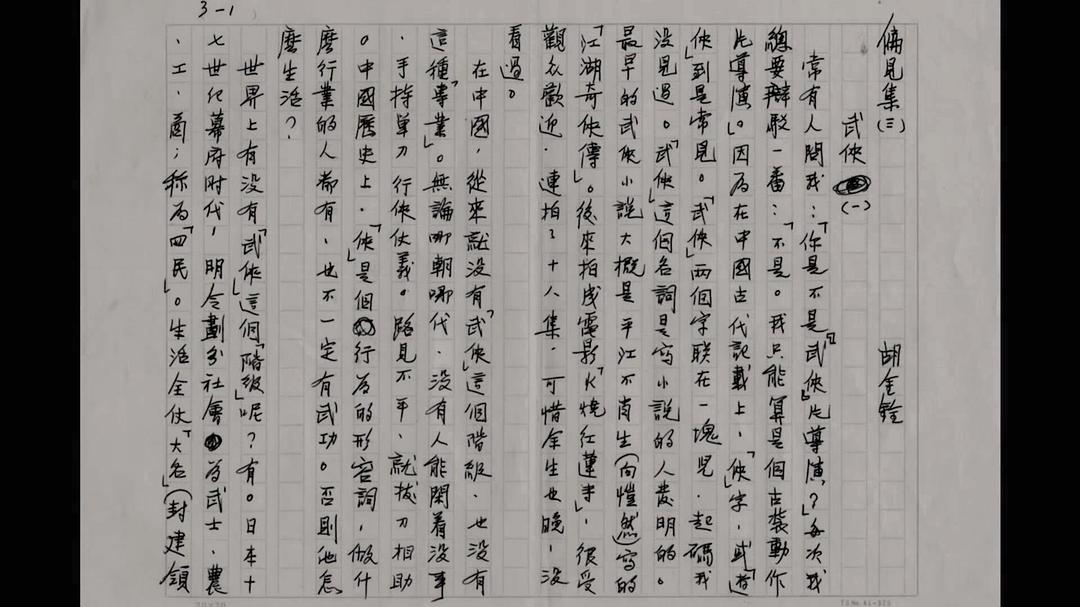 3-1
偏見集(三)
武俠(一) 胡金銓
常有人問我：「你是不是『武俠』片導演？」每次我
總要辯駁一番：「不是。我只能算是個古裝動作
片導演」。因為在中國古代記載上，「俠」字，或「遊
俠」到是常見。「武俠」兩個字联在一塊兒．起碼我
没見過。「武俠」這個名詞是寫小說的人發明的。
最早的武俠小說大概是平江不肖生(向愷然)寫的
「江湖奇俠傳」。後來拍成電影「火燒紅蓮寺」，很受
觀众歡迎．連拍了十八集．可惜余生也晚，没
看過。
在中國，從來就没有「武俠」這個階級．也没有
這種「專業」。無論哪朝哪代．没有人能閑着没事
．手持單刀．行俠仗義。路見不平、就拔刀相助
。中國歷史上．「俠」是個行為的形容詞，做什
麽行業的人都有、也不一定有武功。否則他怎
麽生活？
世界上有没有「武俠」這個「階級」呢？有。日本十
七世纪幕府时代，明令劃分社會為武士、農
．工．商；称為「四民」。生活全仗「大名」(封建領